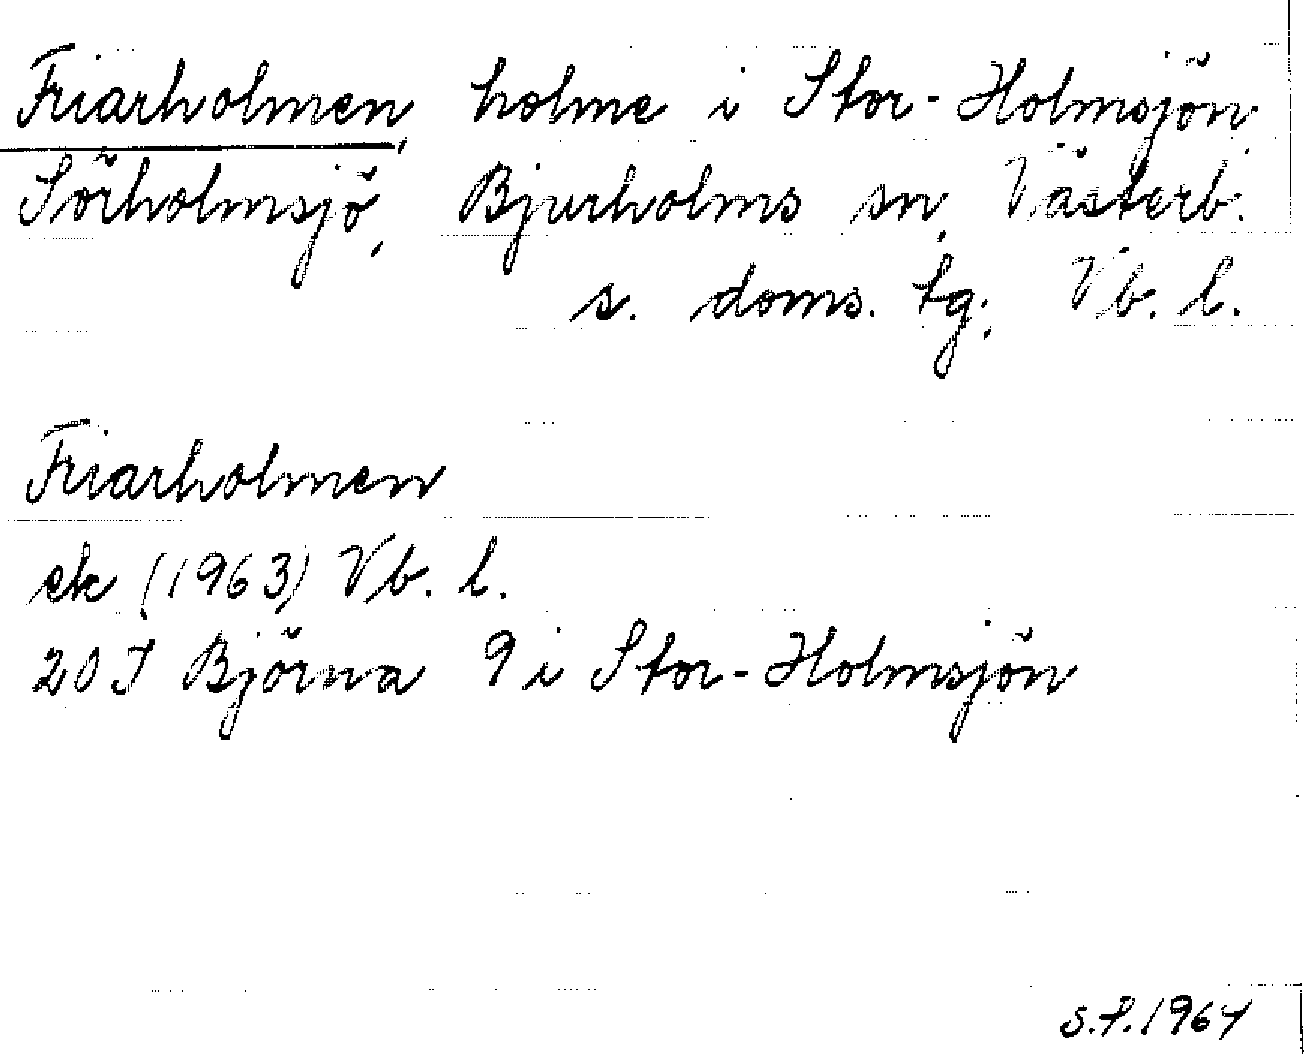 Friarholmen, holme i Stor-Holmsjön,
Sörholmsjö, Bjurholms sn, Västerb.
s. doms. tg, Vb. l.
Friarholmen
ek (1963) Vb. l.
20 I Björna 9 i Stor-Holmsjön
S.P. 1964